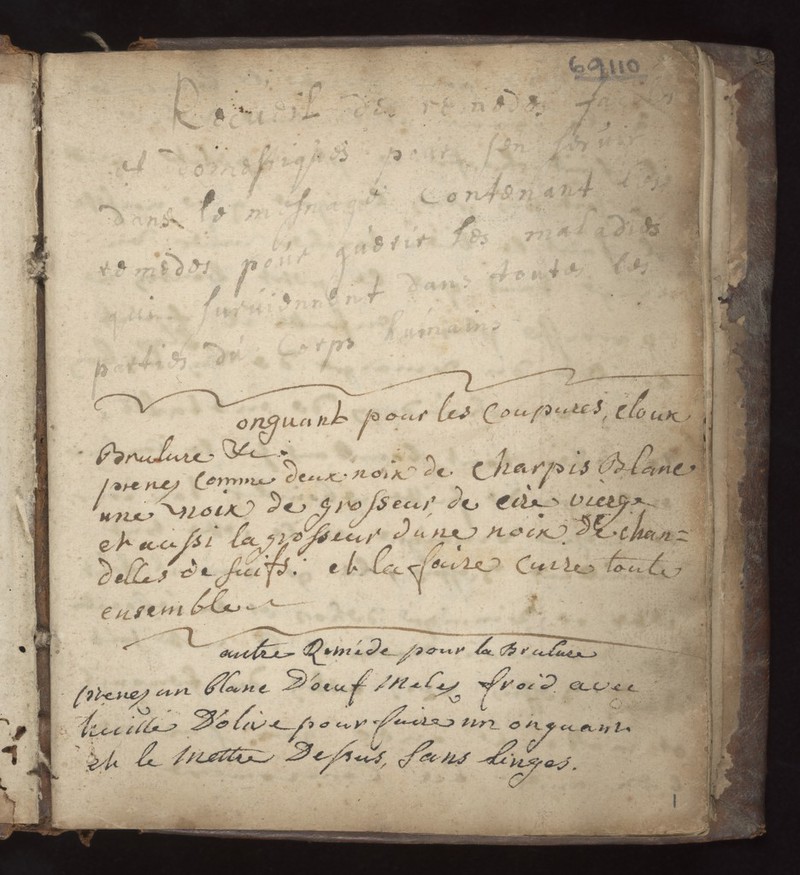 69110
Recueil des remedes
et domestiques pour sen servir
dans le mesnage Contenant les
remedes pour guerir les maladies
qui surviennent dans toutes les
parties du Corps humains
onguant pour les Coupures, cloux
Brulure &c.
prenes comme deux noix de charpis Blanc
une noix de grosseur de cire vierge
et aussi la grosseur dune noix de chan=
delles de suifs. et la faire cuire toute
ensemble
autre Reméde pour la Brulure
prenes un blanc D'oeuf Meles froid avec
huille D'olive pour faire un onguant
et le Mettre Dessus, sans Linges.
1